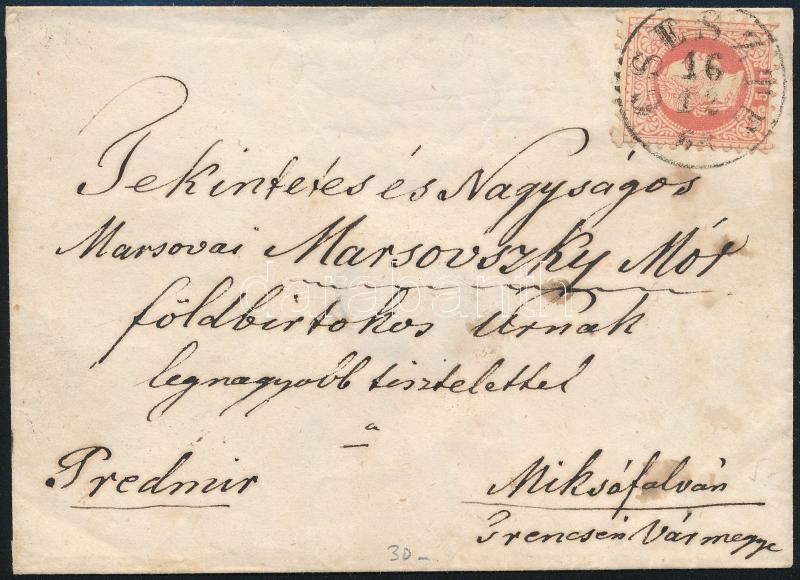 16
12
Tekintetes és Nagyságos
Marsovai Marsovszky Mór
földbirtokos Urnak
legnagyobb tisztelettel
a
Predmir Miksófalván
Trencsén Vármegye
30-
darabanth